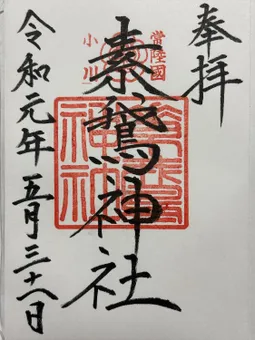 奉拝
常陸國
小川
素鵞神社
素鵞神社
令和元年五月三十一日